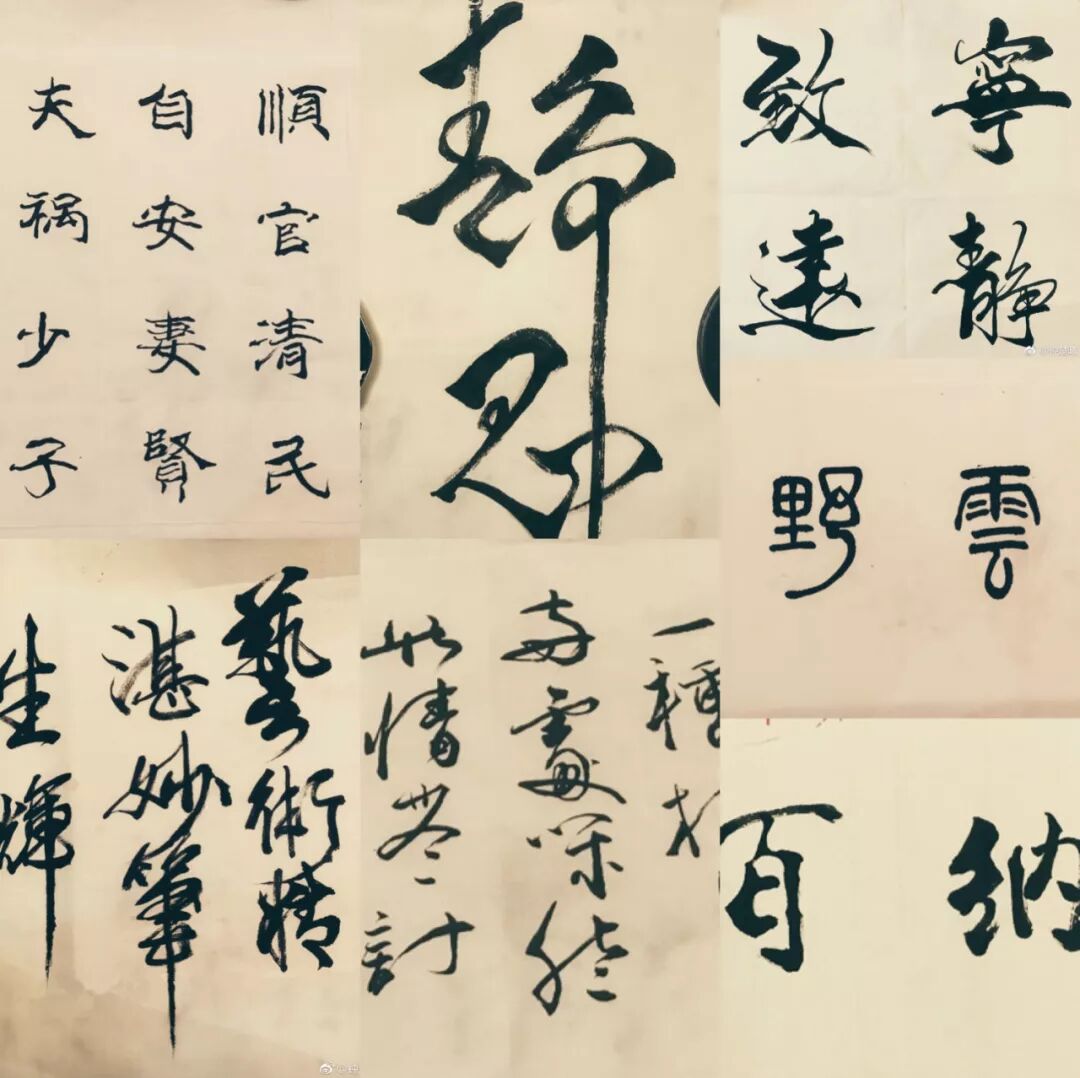 順官清民
自安妻賢
夫禍少子
靜思
寧靜
致遠
雲
野
藝術精
湛妙筆
生輝
一種
两處闲愁
此情無計
納
百